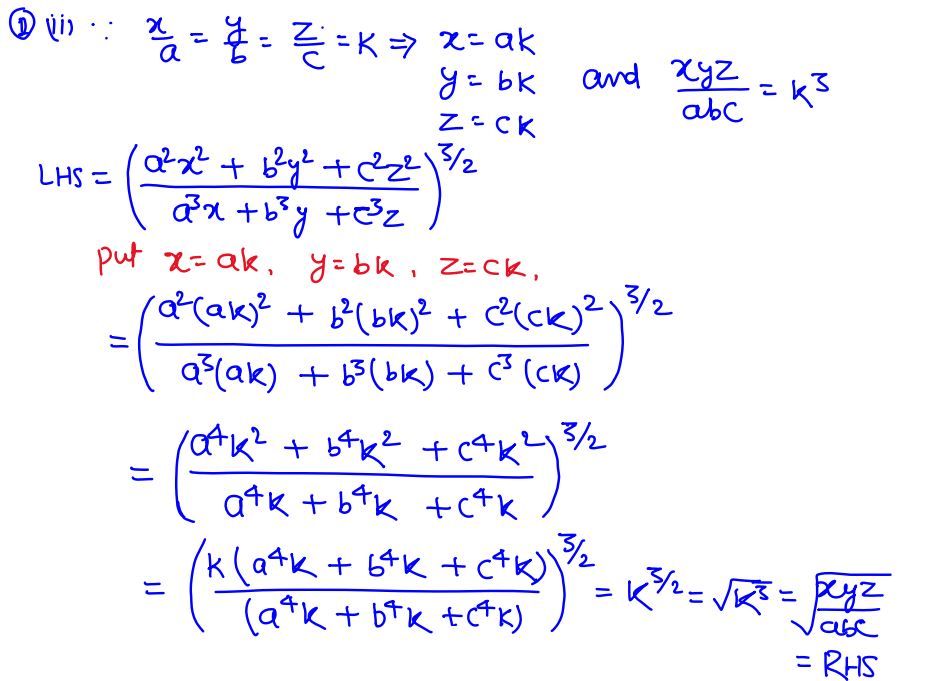 ① (ii) ∵ x/a = y/b = z/c = k ⇒ x = ak
y = bk and xyz/abc = k³
z = ck
LHS = ((a²x² + b²y² + c²z²)/(a³x + b³y + c³z))^3/2
put x = ak, y = bk, z = ck,
= ((a²(ak)² + b²(bk)² + c²(ck)²)/(a³(ak) + b³(bk) + c³(ck)))^3/2
= ((a⁴k² + b⁴k² + c⁴k²)/(a⁴k + b⁴k + c⁴k))^3/2
= (k(a⁴k + b⁴k + c⁴k)/(a⁴k + b⁴k + c⁴k))^3/2 = k^3/2 = √k³ = √(xyz/abc)
= RHS